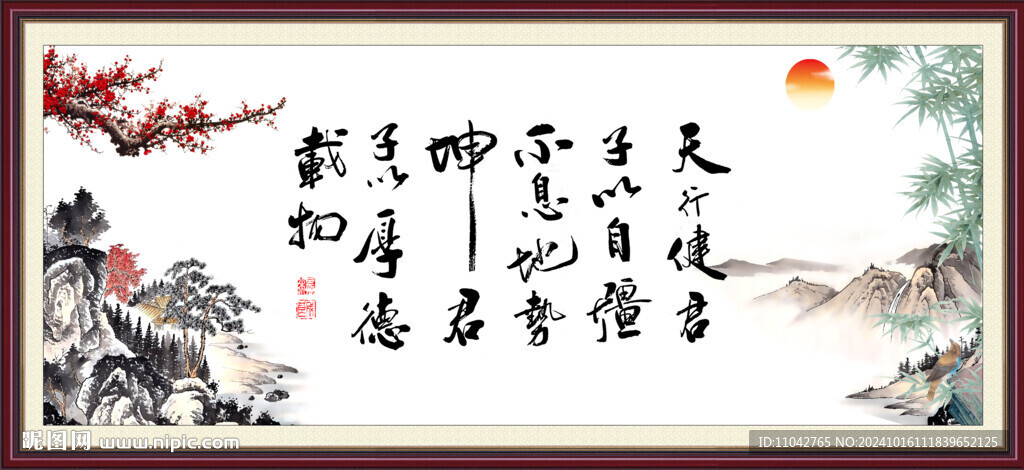 天行健君
子以自疆
不息地勢
坤君
子以厚德
載物
昵图网 www.nipic.com
ID:11042765 NO:20241016111839652125